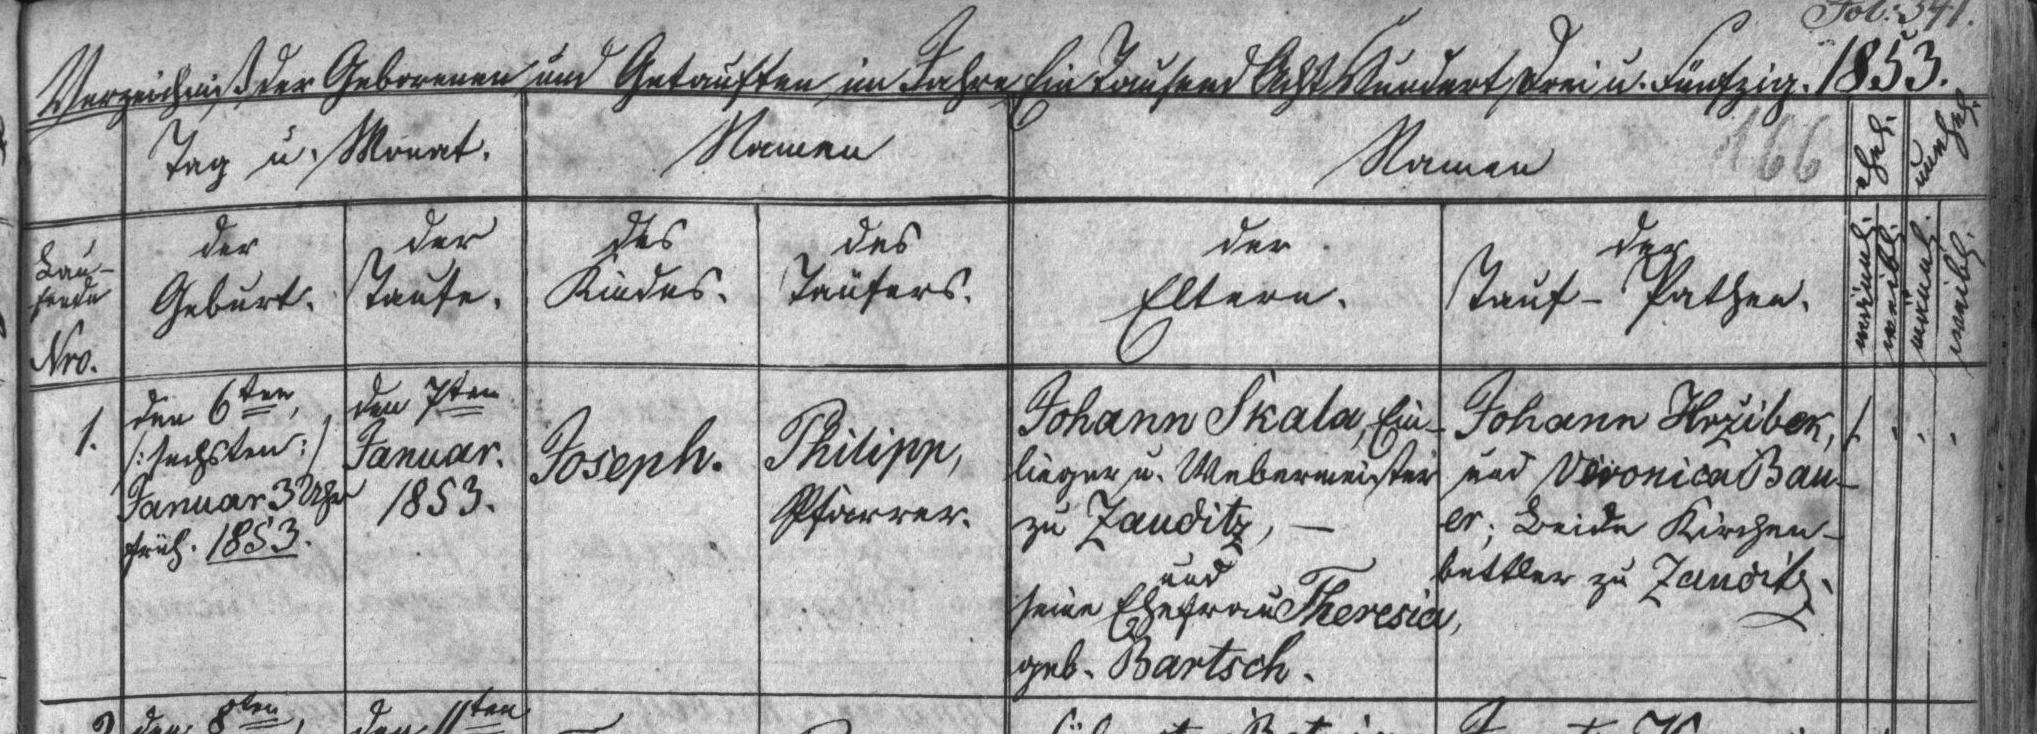 Fol: 341.
Verzeichniß der Geborenen und Getauften im Jahre Ein Tausend Acht Hundert Drei u. Fünfzig. 1853.
Tag u. Monat.
Namen
Namen
166
ehel.
unehel.
Lau-
fende
Nro.
der
Geburt.
der
Taufe.
des
Kindes.
des
Täufers.
der
Eltern.
der
Tauf- Pathen.
männl.
weibl.
männl.
weibl.
1.
den 6ten,
/:sechsten:/
Januar 3 Uhr
früh. 1853.
den 7ten
Januar.
1853.
Joseph.
Philipp,
Pfarrer.
Johann Skala, Ein-
lieger u. Webermeister
zu Zauditz, —
und
seine Ehefrau Theresia,
geb. Bartsch.
Johann Hrziber,
und Veronica Bau-
er; Beide Kirchen-
bettler zu Zauditz.
1.
2
den 8ten,
den 11ten